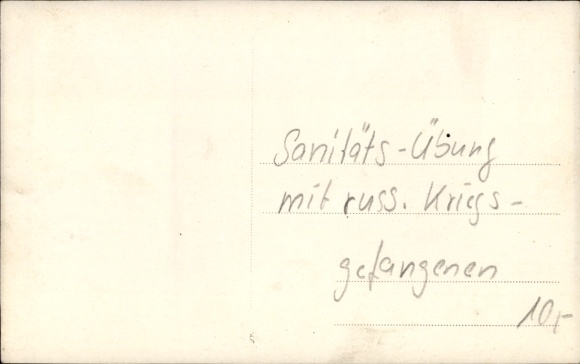 Sanitäts-Übung
mit russ. Kriegs-
gefangenen
10,-